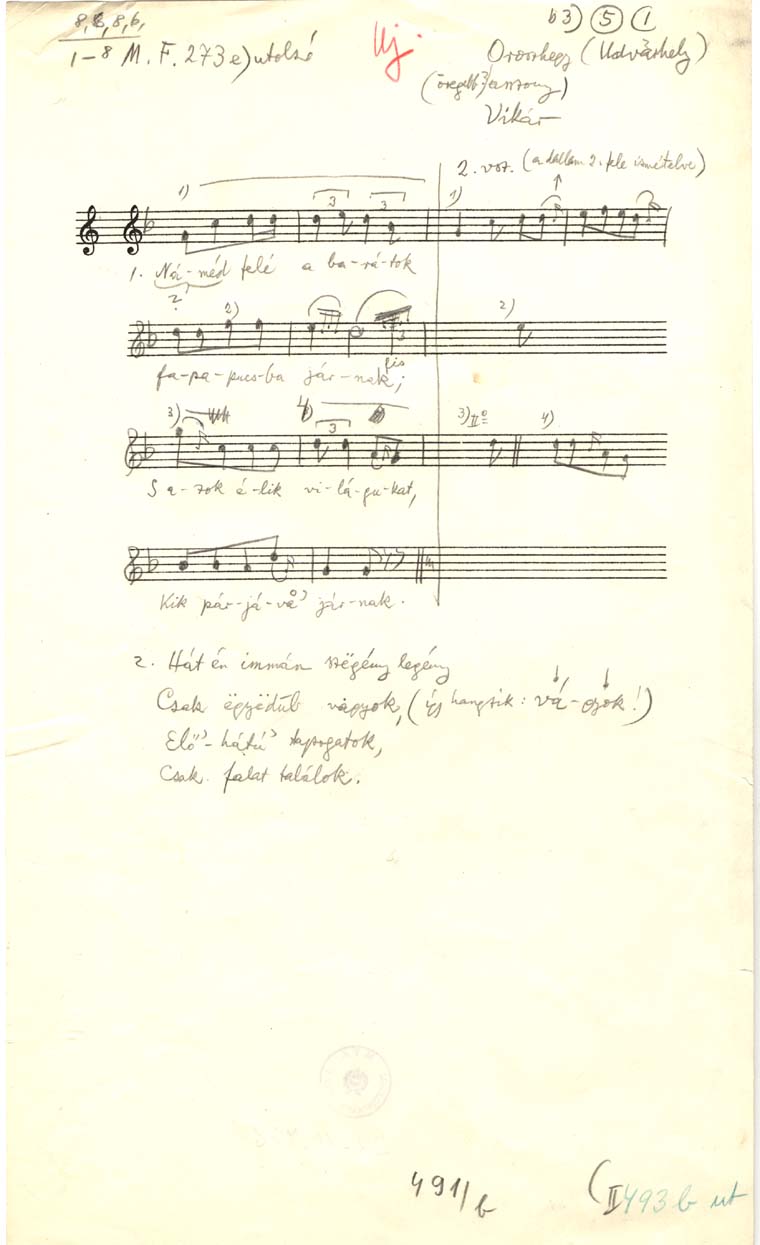 8, 6, 8, 6, b3) 5 1
1–8 M. F. 273 e) utolsó Uj. Oroszhegy (Udvarhely)
(öregebb? asszony)
Vikár
2. vsz. (a dallam 2. fele ismételve)
1) 3 3 1)
1. Ná-méd felé a ba-rá-tok
?
2) 2)
fis
fa-pa-pucs-ba jár-nak;
3) 4) 3 3) II⁰ 4)
S a-zok é-lik vi-lá-gu-kat,
Kik pár-já-vȧ' jár-nak.
2. Hát én immán szëgény legény
Csak ëgyedűl vagyok, (így hangzik: vá-gyok!)
Elő'-hátú' tapogatok,
Csak falat találok.
491/b (II 493 b ut